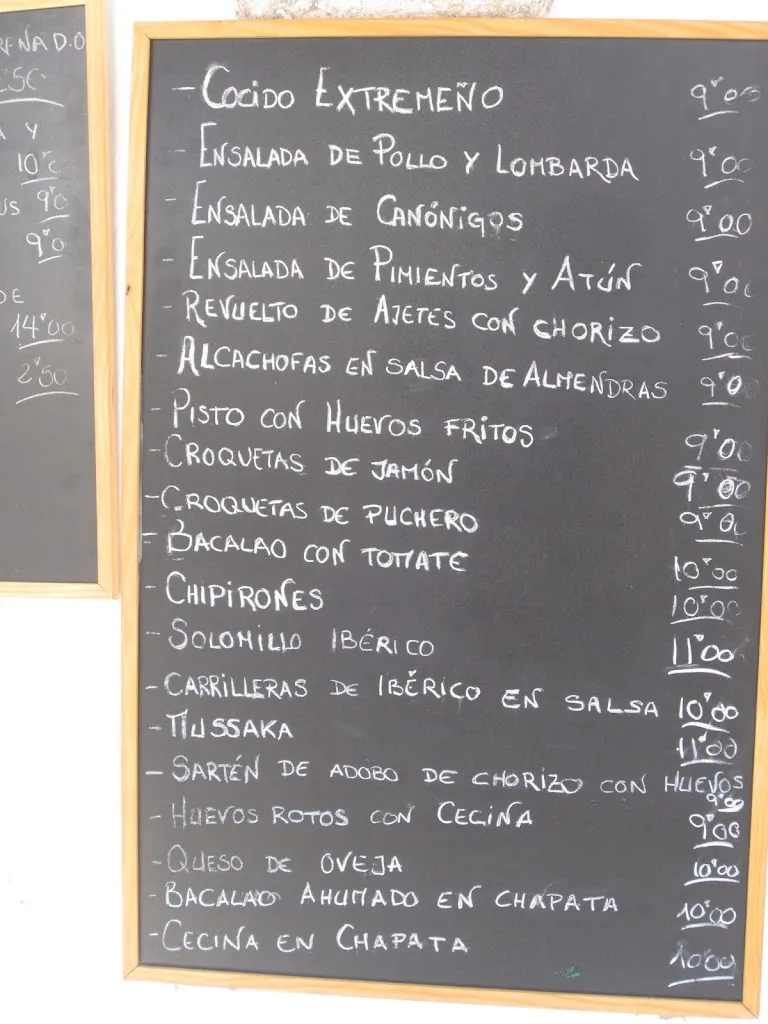 10'0
9'0
9'0
DE
14'00
2'50
- COCIDO EXTREMEÑO 9'00
- ENSALADA DE POLLO Y LOMBARDA 9'00
- ENSALADA DE CANÓNIGOS 9'00
- ENSALADA DE PIMIENTOS Y ATÚN 9'00
- REVUELTO DE AJETES CON CHORIZO 9'00
- ALCACHOFAS EN SALSA DE ALMENDRAS 9'00
- PISTO CON HUEVOS FRITOS 9'00
- CROQUETAS DE JAMÓN 9'00
- CROQUETAS DE PUCHERO 9'00
- BACALAO CON TOMATE 10'00
- CHIPIRONES 10'00
- SOLOMILLO IBÉRICO 11'00
- CARRILLERAS DE IBÉRICO EN SALSA 10'00
- MUSSAKA 11'00
- SARTÉN DE ADOBO DE CHORIZO CON HUEVOS 9'00
- HUEVOS ROTOS CON CECINA 9'00
- QUESO DE OVEJA 10'00
- BACALAO AHUMADO EN CHAPATA 10'00
- CECINA EN CHAPATA 10'00